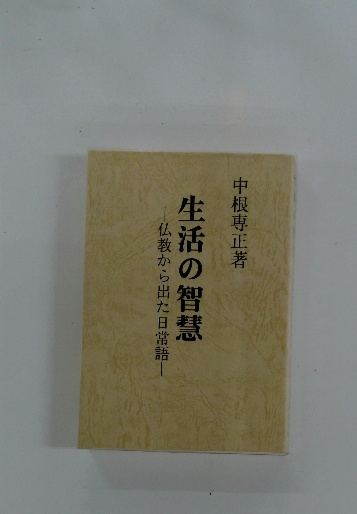 中根専正著
生活の智慧
―仏教から出た日常語―